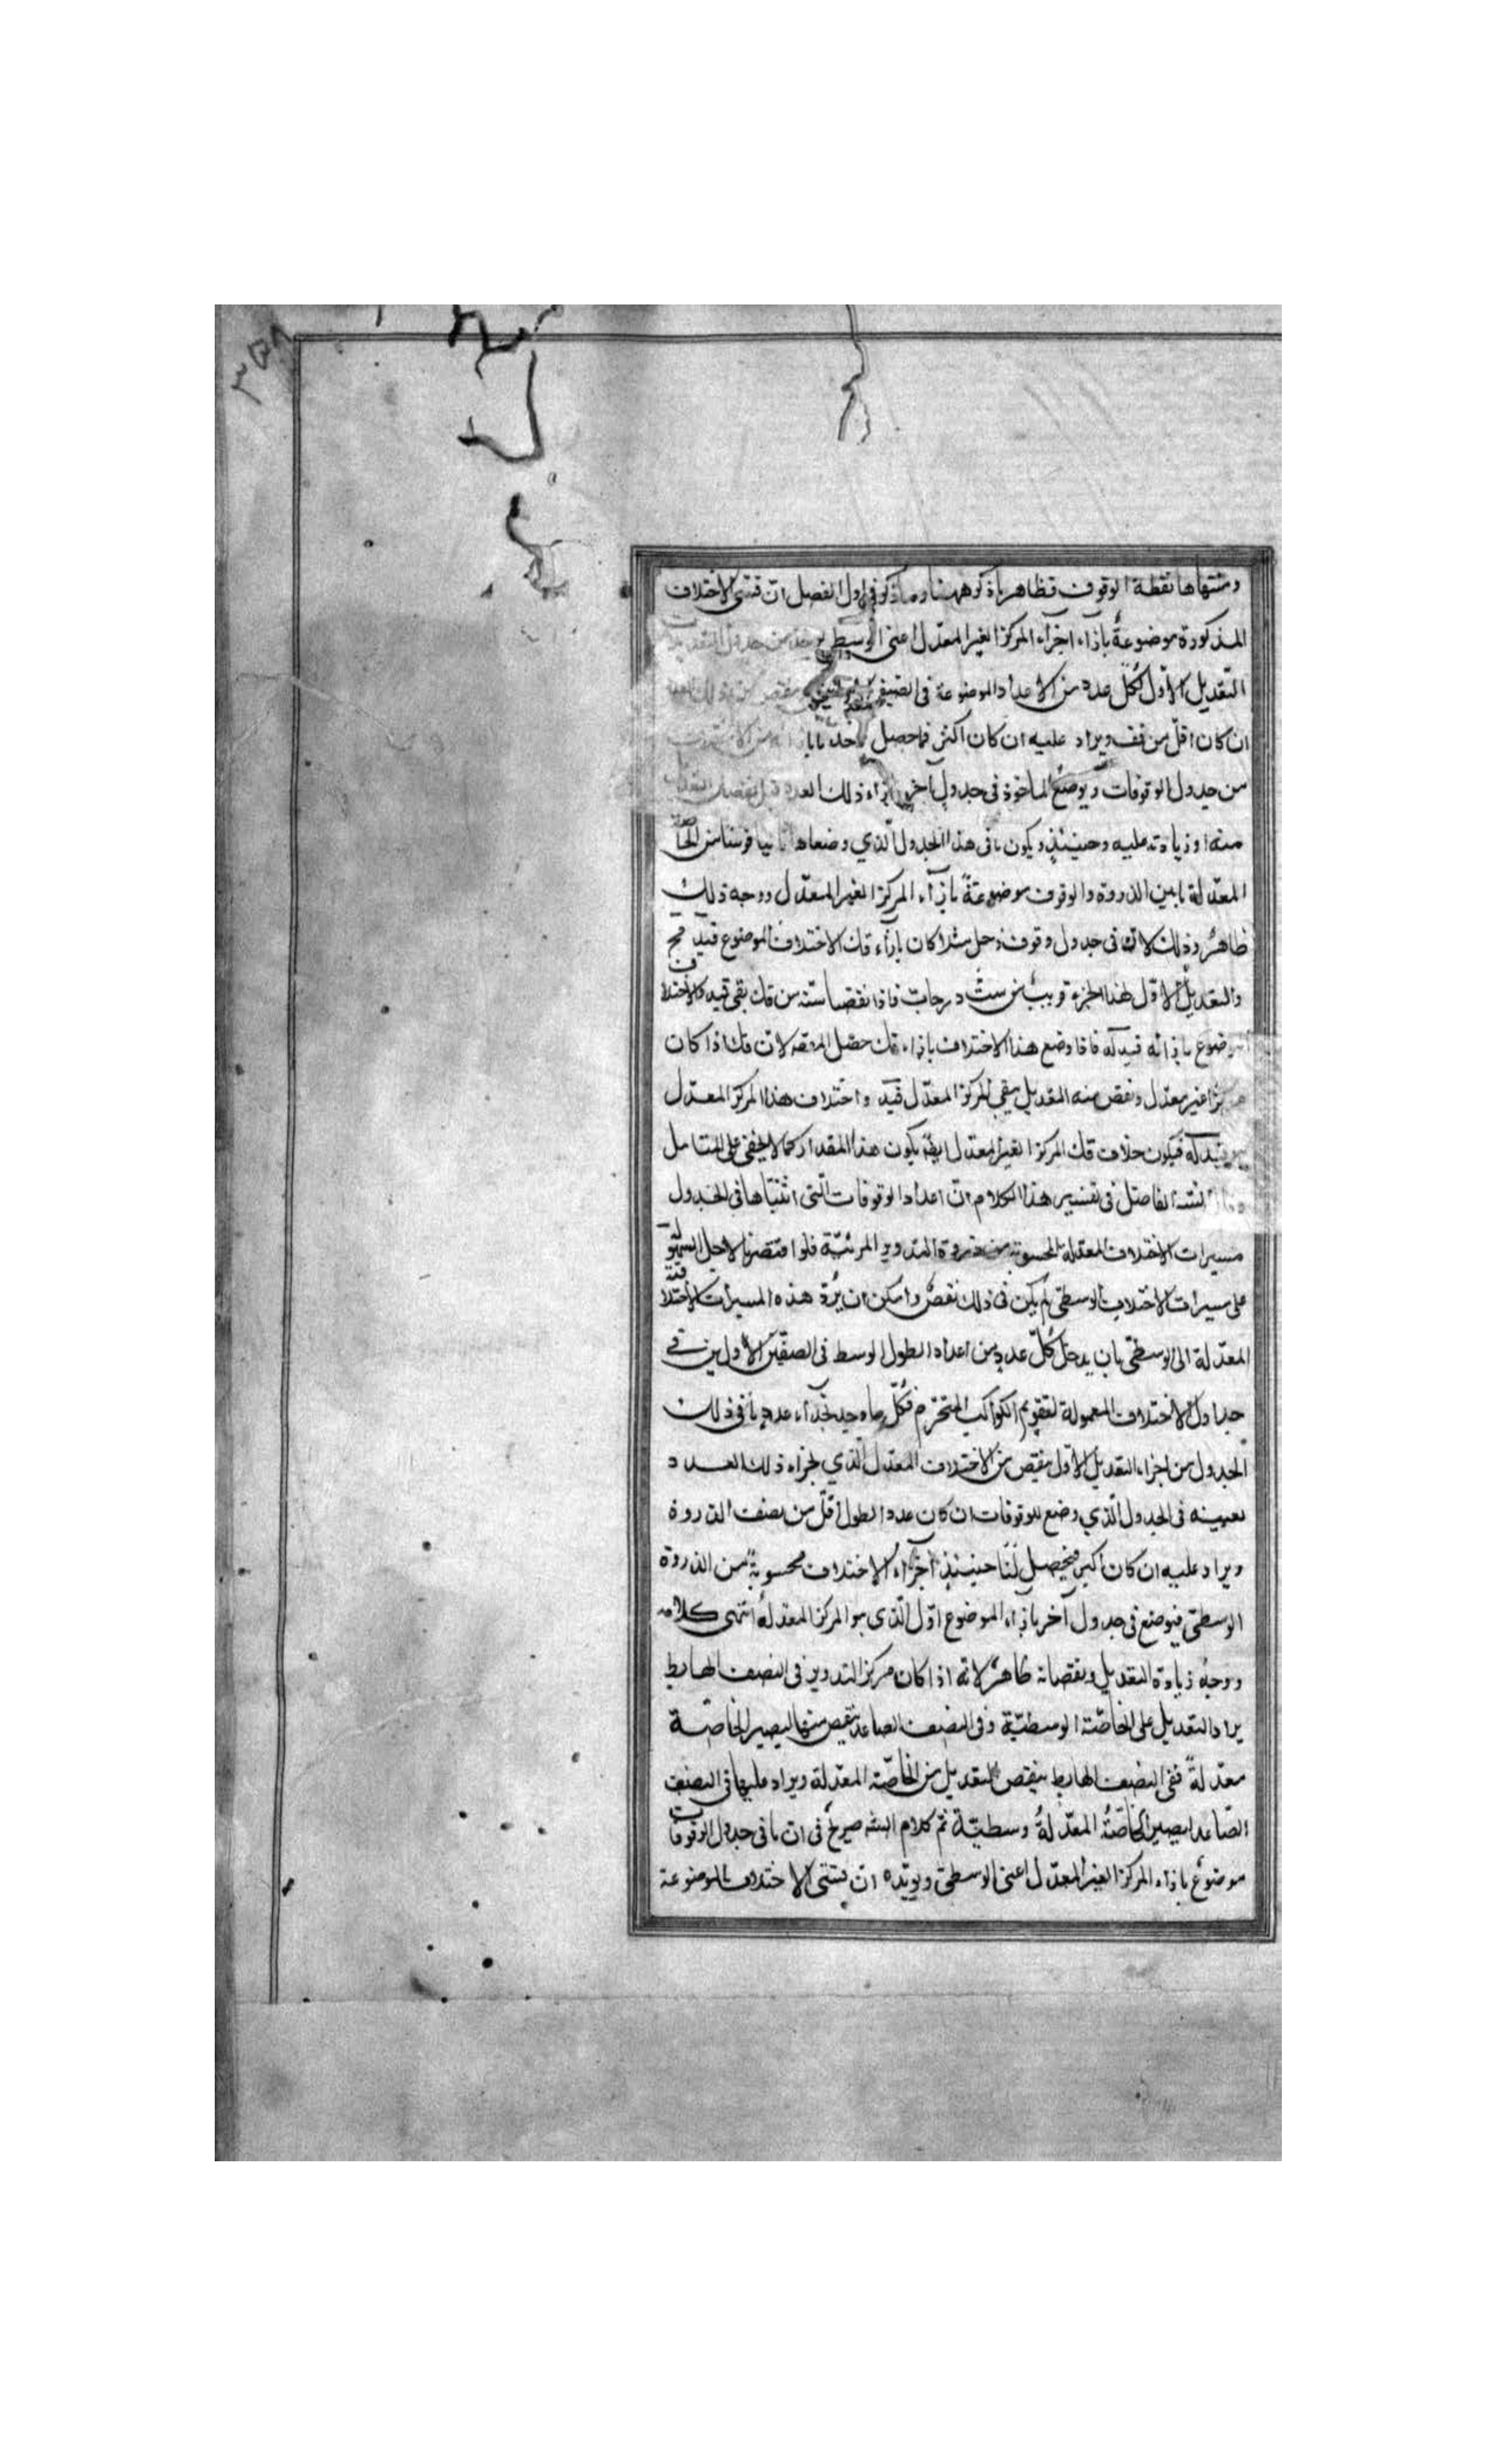 ٣٥٨
ومنتهاها نقطة الوقوف فظاهر ما ذكر ههنا وما ذكر في اول الفصل ان قسي الاختلاف
المذكورة موضوعة بازاء اجزاء المركز الغير المعدل اعنى الوسطى من جدول
التعديل الاول لكل عدد من الاعداد الموضوعة فى الصفين
ان كان اقل من قف ويزاد عليه ان كان اكثر فما حصل
من جدول الوقوفات ويوضع الماخوذ فى جدول آخر بازاء ذلك العدد قبل نقصان التعديل
منه او زيادته عليه وحينئذ يكون ما فى هذا الجدول الذي وضعناه ثانيا قوسا من الخاصة
المعدلة ما بين الذروة والوقوف موضوعة بازاء المركز الغير المعدل ووجه ذلك
ظاهر وذلك لانه فى جدول وقوف زحل مثلا كان بازاء قك الاختلاف الموضوع قيد
والتعديل الاول لهذا الجزء قريب من ست درجات فاذا نقصنا ستة من قك بقى قيد والاختلاف
الموضوع بازائه قيد كه فاذا وضع هذا الاختلاف بازاء قك حصل المدعى لان قك اذا كان
مركزا غير معدل ونقص منه التعديل يبقى المركز المعدل قيد واختلاف هذا المركز المعدل
قيد كه فيكون خلاف قك المركز الغير المعدل ايضا يكون هذا المقدار كما لا يخفى على المتامل
الشـه الفاضل فى تفسير هذا الكلام ان اعداد الوقوفات التى اثبتناها فى الجدول
مسيرات الاختلاف المعدلة المحسوبة من ذروة التدوير المرئية فلو اقتصرنا لاجل السهولة
على مسيرات الاختلاف الوسطى لم يكن فى ذلك نقص وامكن ان يرد هذه المسيرات الاختلافية
المعدلة الى الوسطى بان يدخل كل عدد من اعداد الطول الوسط فى الصفين الاولين فى
جداول الاختلاف المعمولة لتقويم الكواكب المتحيرة فكل ما وجد بحذاء عدد ما فى ذلك
الجدول من اجزاء التعديل الاول ينقص من الاختلاف المعدل الذي بجزاء ذلك العدد
بعينه فى الجدول الذي وضع للوقوفات ان كان عدد الطول اقل من نصف الذروة
ويزاد عليه ان كان اكبر فيحصل لنا حينئذ اجزاء الاختلاف محسوبة من الذروة
الوسطى فيوضع فى جدول آخر بازاء الموضوع اول الذى هو المركز المعدلة انتهى كلامه
ووجه زيادة التعديل ونقصانه ظاهر لانه اذا كان مركز التدوير فى النصف الهابط
يزاد التعديل على الخاصة الوسطية وفى النصف الصاعد ينقص منها ليصير الخاصة
معدلة ففى النصف الهابط ينقص التعديل من الخاصة المعدلة ويزاد عليها فى النصف
الصاعد ليصير الخاصة المعدلة وسطية ثم كلام الشـه صريح فى ان ما فى جدول الوقوفات
موضوع بازاء المركز الغير المعدل اعنى الوسطى ويؤيده ان قسى الاختلاف الموضوعة